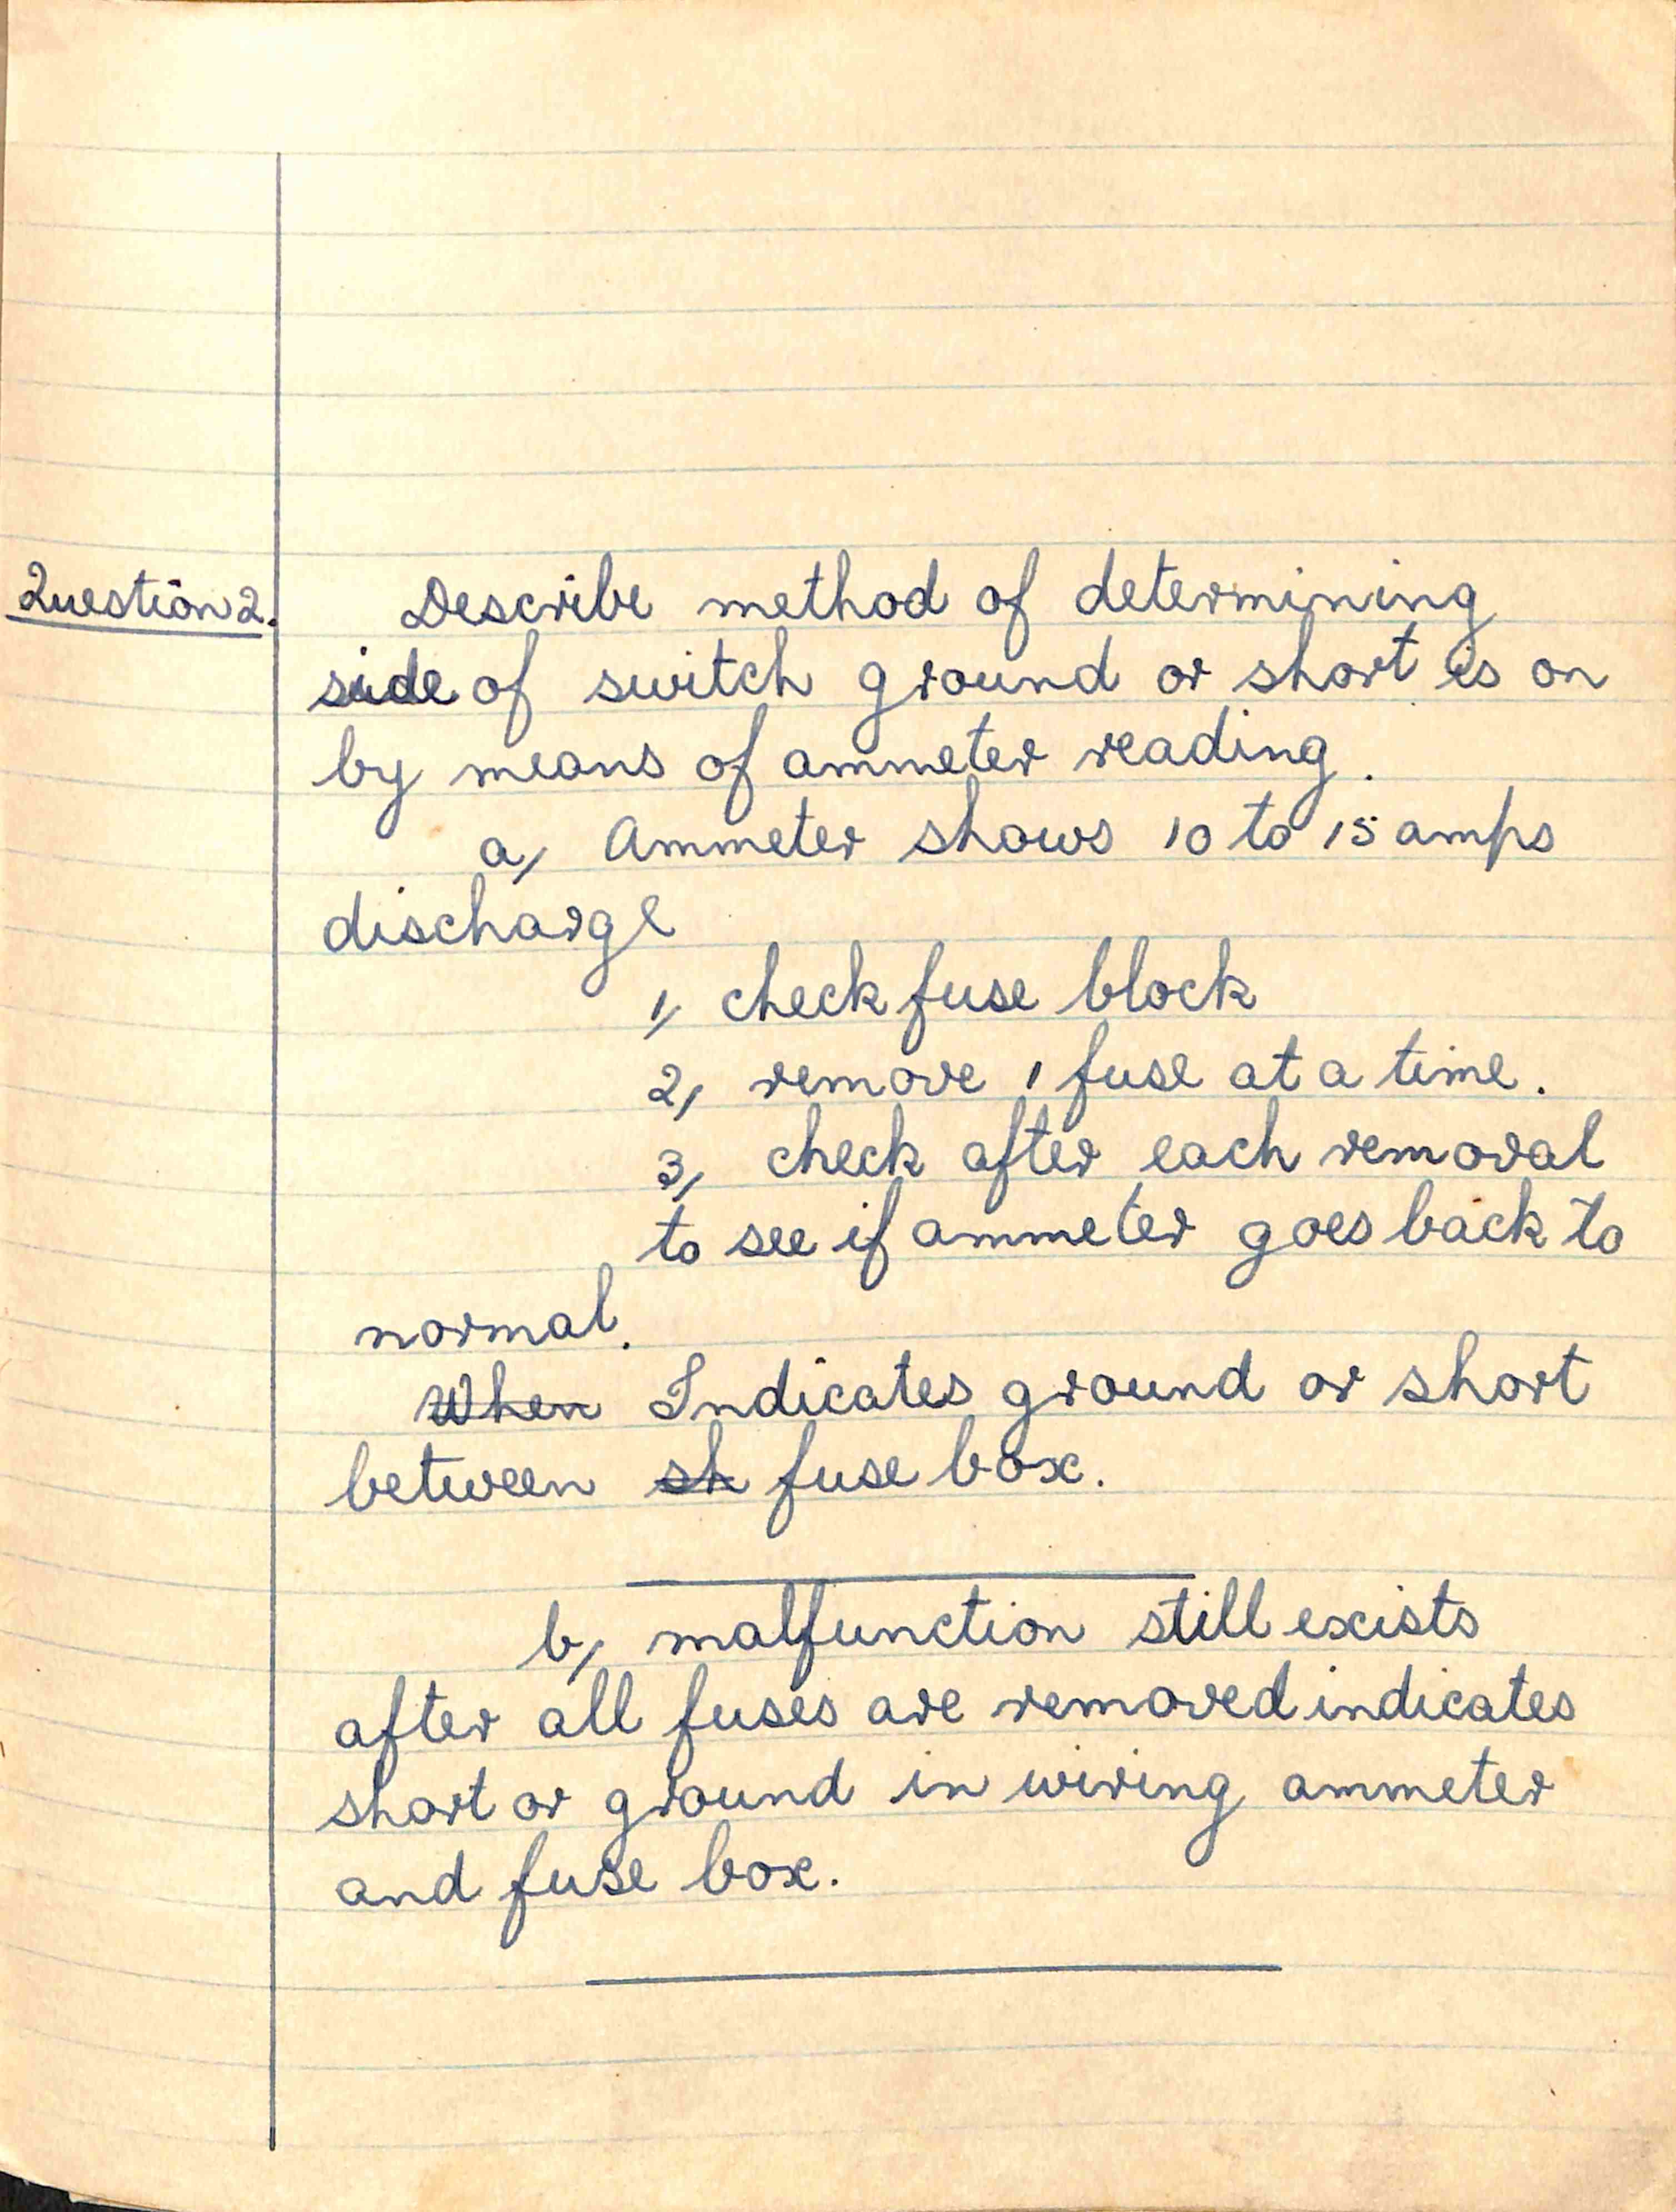 Question 2. Describe method of determining
side of switch ground or short is on
by means of ammeter reading.
a, Ammeter shows 10 to 15 amps
discharge
1, check fuse block
2, remove 1 fuse at a time.
3, check after each removal
to see if ammeter goes back to
normal.
When Indicates ground or short
between sh fuse box.
b, malfunction still exists
after all fuses are removed indicates
short or ground in wiring ammeter
and fuse box.